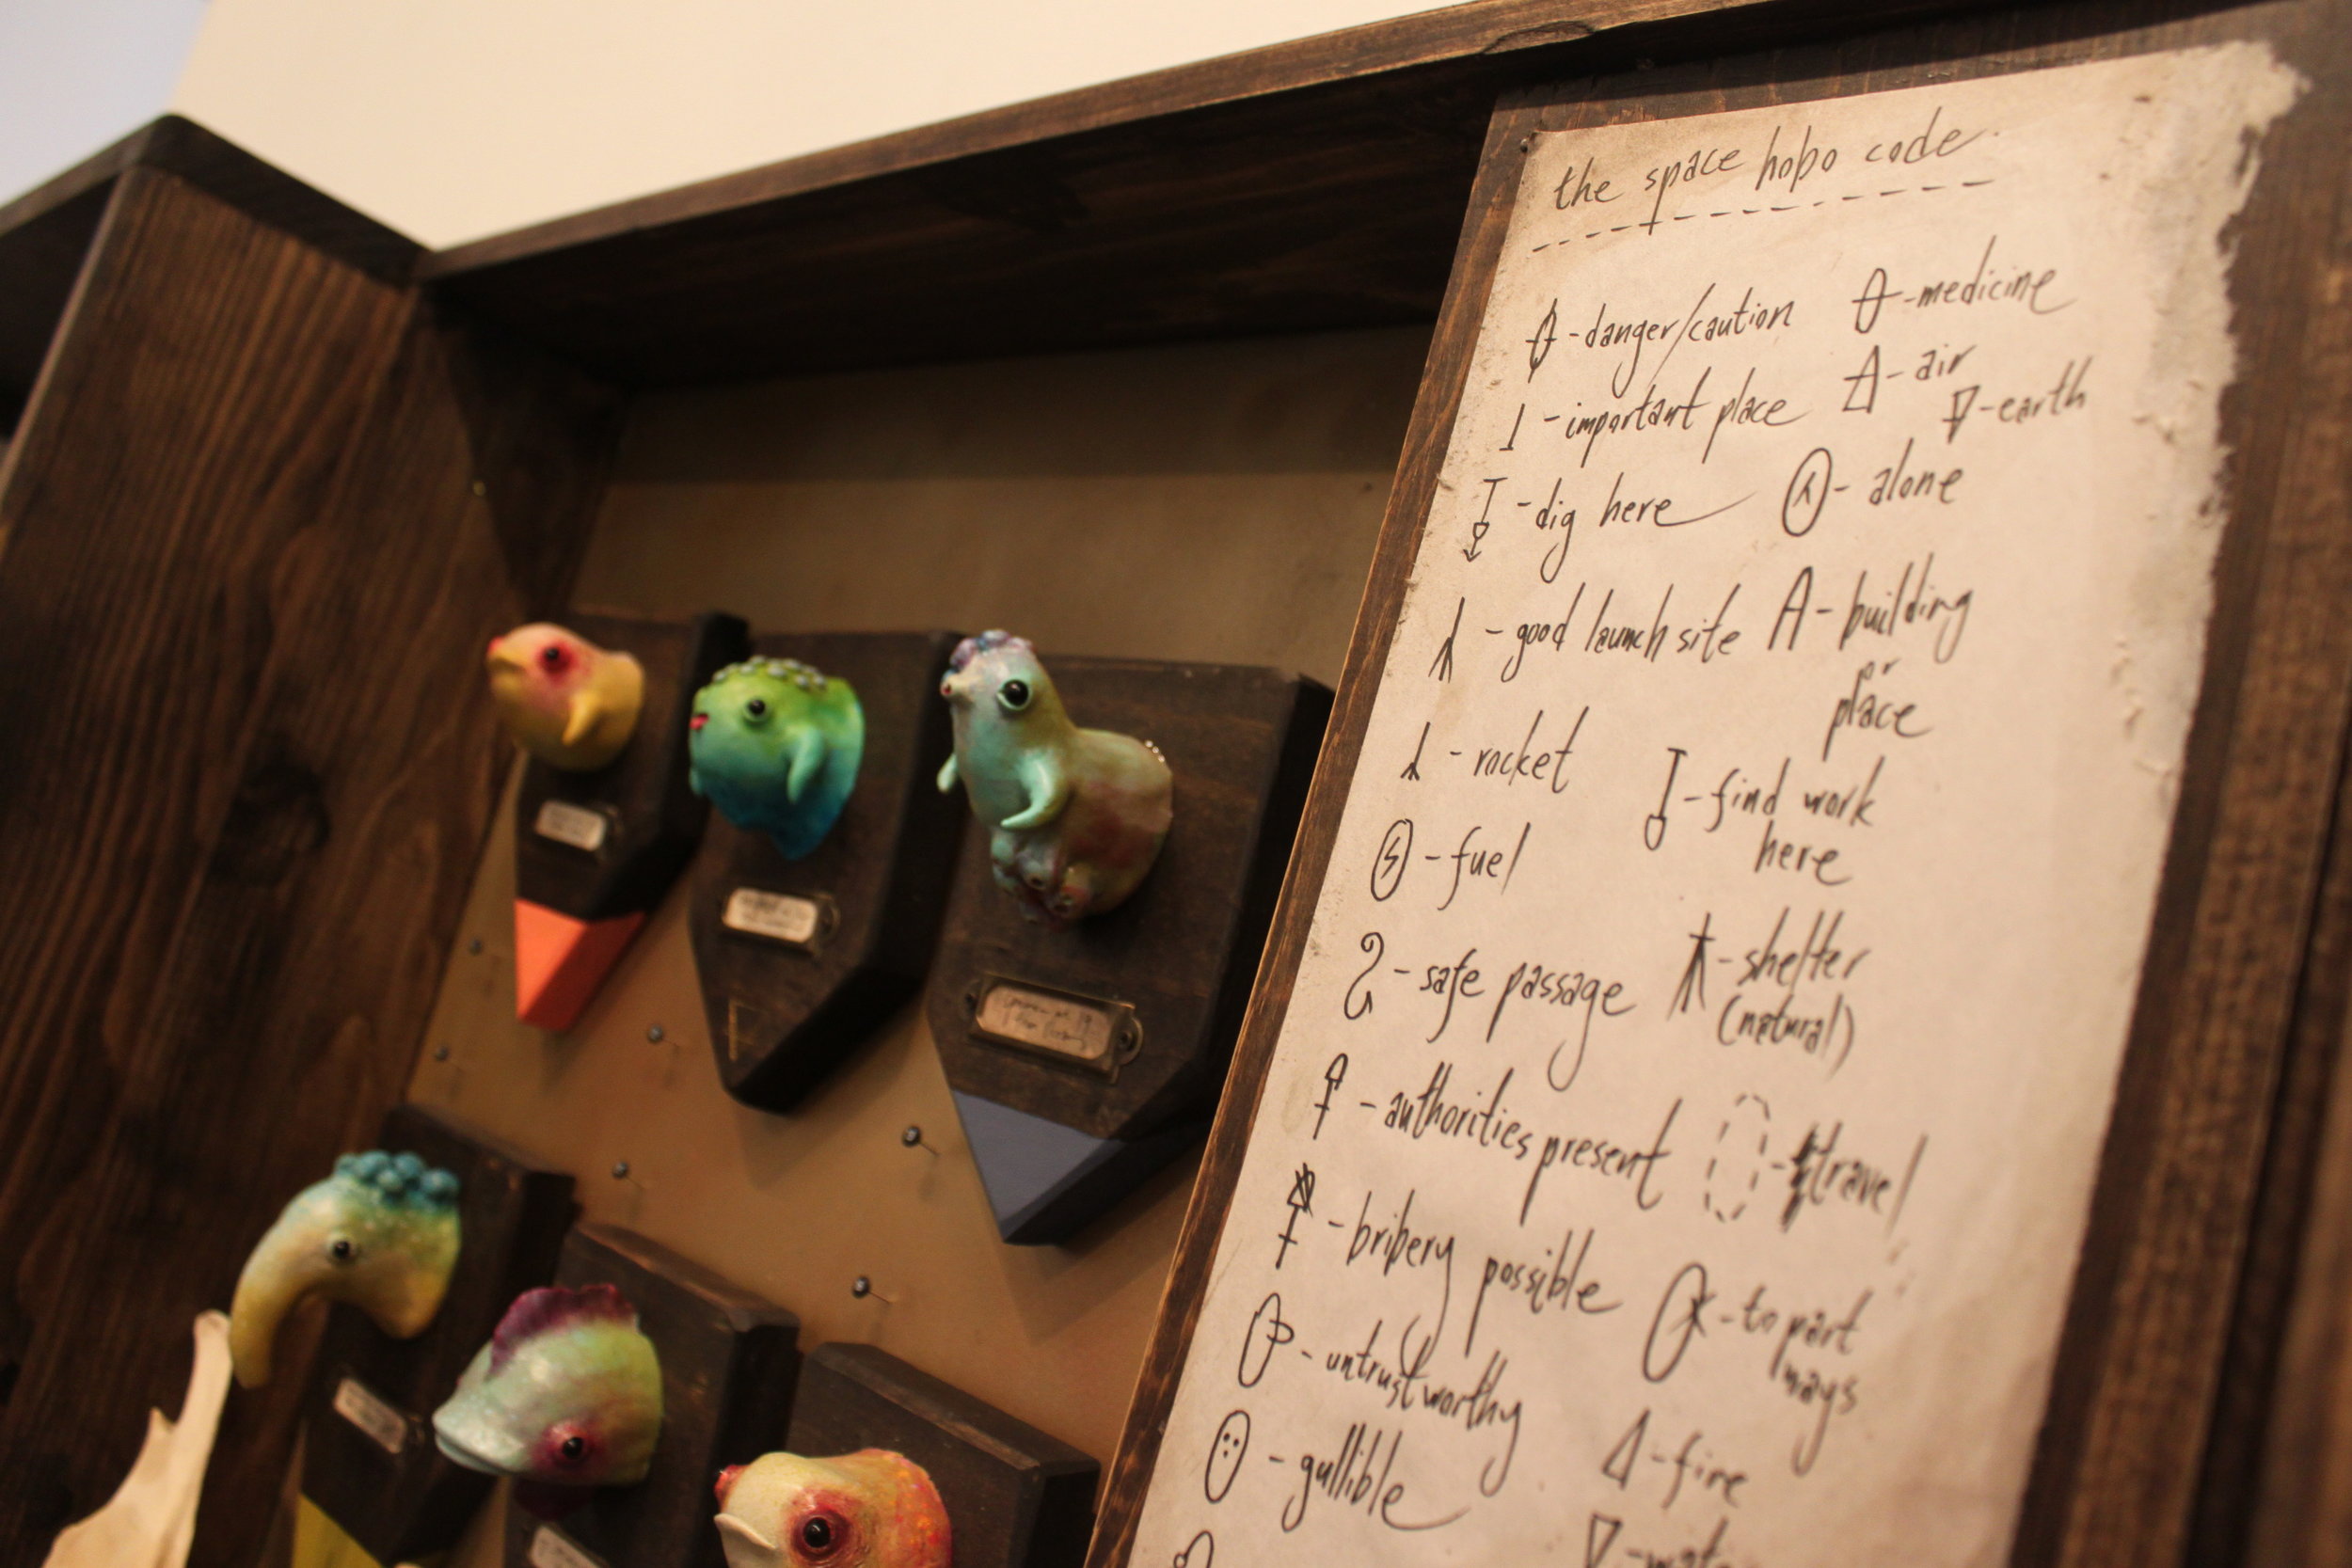 the space hobo code
- danger/caution
- medicine
- important place
- air
- earth
- dig here
- alone
- good launch site
- building
or
place
- rocket
- find work
here
- fuel
- safe passage
- shelter
(natural)
- authorities present
- travel
- bribery possible
- to part
ways
- untrustworthy
- gullible
- fire